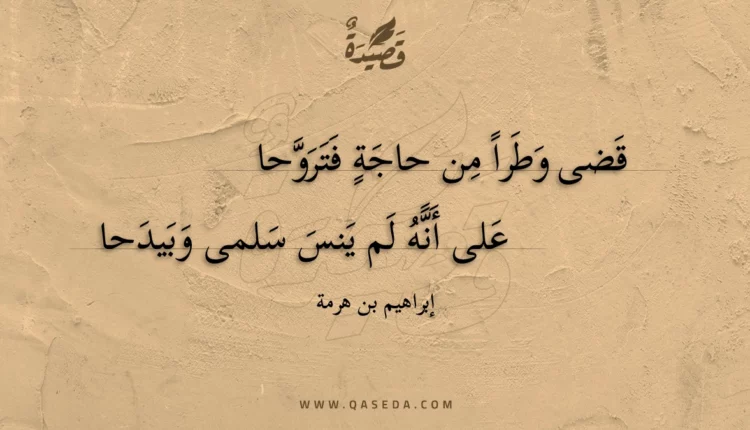 قَصِيدَةٌ
قَضى وَطَراً مِن حاجَةٍ فَتَرَوَّحا
عَلى أَنَّهُ لَم يَنسَ سَلمى وَبَيدَحا
إبراهيم بن هرمة
WWW.QASEDA.COM